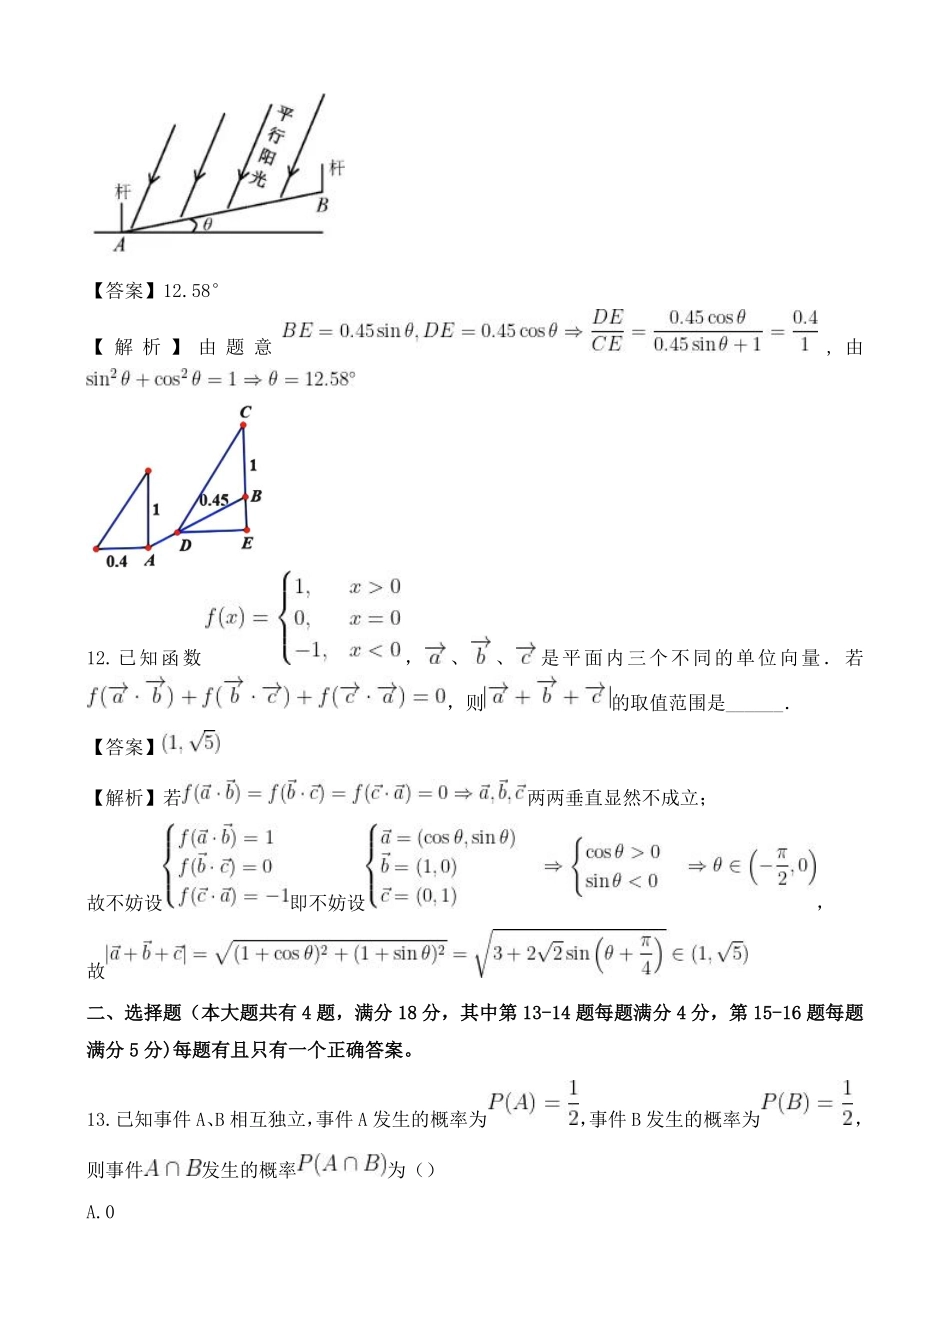 平行阳光
杆
杆
B
θ
A
【答案】12.58°
【解析】由题意 BE = 0.45 sin θ, DE = 0.45 cos θ ⇒ DE/CE = 0.45 cos θ/(0.45 sin θ + 1) = 0.4/1 , 由
sin² θ + cos² θ = 1 ⇒ θ = 12.58°
C
1
0.45
B
1
D
E
0.4
A
12. 已知函数 f(x) = { 1, x > 0; 0, x = 0; −1, x < 0 , a⃗、b⃗、c⃗ 是平面内三个不同的单位向量. 若
f(a⃗ · b⃗) + f(b⃗ · c⃗) + f(c⃗ · a⃗) = 0, 则|a⃗ + b⃗ + c⃗|的取值范围是______.
【答案】(1, √5)
【解析】若f(a⃗ · b⃗) = f(b⃗ · c⃗) = f(c⃗ · a⃗) = 0 ⇒ a⃗, b⃗, c⃗ 两两垂直显然不成立;
故不妨设 { f(a⃗ · b⃗) = 1; f(b⃗ · c⃗) = 0; f(c⃗ · a⃗) = −1 即不妨设 { a⃗ = (cos θ, sin θ); b⃗ = (1, 0); c⃗ = (0, 1) ⇒ { cos θ > 0; sin θ < 0 ⇒ θ ∈ (−π/2, 0) ,
故|a⃗ + b⃗ + c⃗| = √((1 + cos θ)² + (1 + sin θ)²) = √(3 + 2√2 sin(θ + π/4)) ∈ (1, √5)
二、选择题（本大题共有 4 题，满分 18 分，其中第 13-14 题每题满分 4 分，第 15-16 题每题
满分 5 分)每题有且只有一个正确答案。
13. 已知事件 A、B 相互独立, 事件 A 发生的概率为P(A) = 1/2, 事件 B 发生的概率为P(B) = 1/2,
则事件A ∩ B发生的概率P(A ∩ B)为()
A. 0